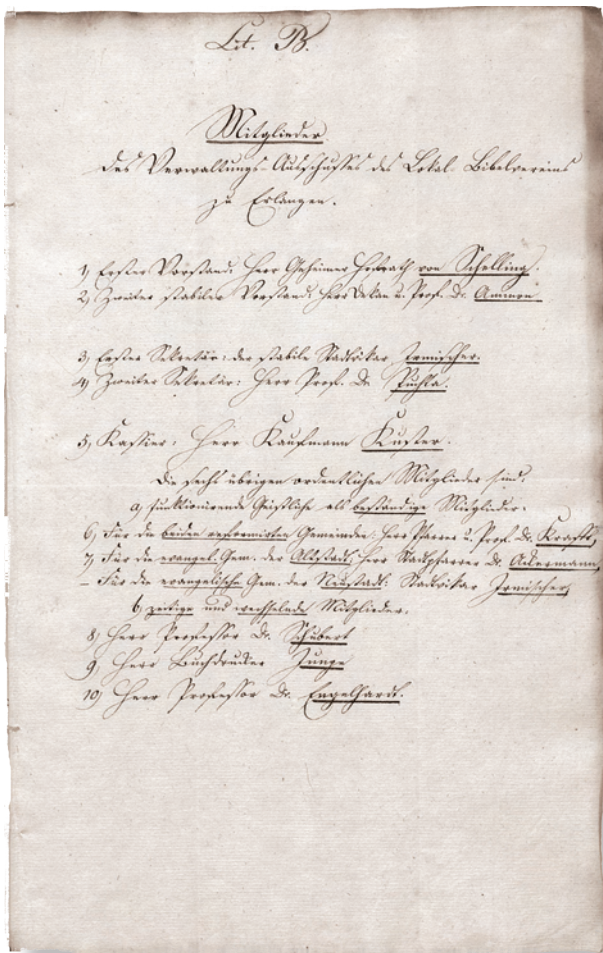 Lit. B.
Mitglieder
des Verwaltungs-Ausschußes des Lokal-Bibelvereins
zu Erlangen.
1) Erster Vorstand: Herr Geheimer Hofrath von Schelling.
2) Zweiter stabiler Vorstand: Herr Dekan u. Prof. Dr. Ammon
3) Erster Sekretär: der stabile Stadtvikar Irmischer.
4) Zweiter Sekretär: Herr Prof. Dr. Puchta.
5) Kassier: Herr Kaufmann Kuster.
Die sechs übrigen ordentlichen Mitglieder sind:
a) funktionirende Geistliche als beständige Mitglieder:
6) Für die beiden reformirten Gemeinden: Herr Pfarrer u. Prof. Dr. Krafft,
7) Für die evangel. Gem. der Altstadt: Herr Stadtpfarrer Dr. Ackermann,
– Für die evangelische Gem. der Neustadt: Stadtvikar Irmischer,
b) zeitige und wechselnde Mitglieder:
8) Herr Professor Dr. Schubert
9) Herr Buchdrucker Junge
10) Herr Professor Dr. Engelhardt.